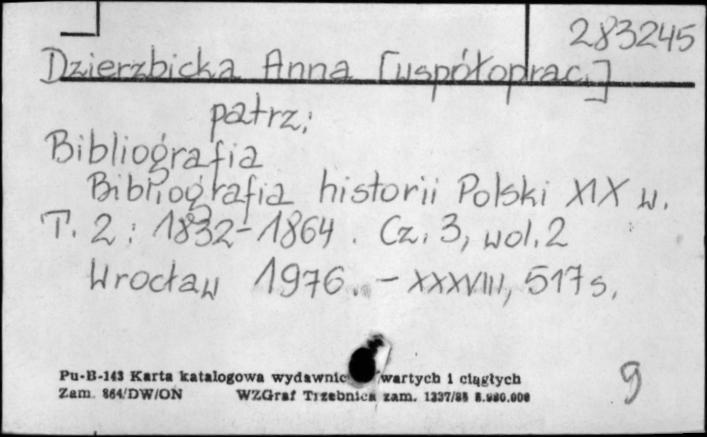 283245
Dzierzbicka Anna [współoprac.]
patrz:
Bibliografia
Bibliografia historii Polski XIX w.
T. 2: 1832-1864. Cz. 3, wol. 2
Wrocław 1976. - XXXVIII, 517 s.
Pu-B-143 Karta katalogowa wydawnic wartych i ciągłych
Zam. 864/DW/ON WZGraf Trzebnica zam.
9